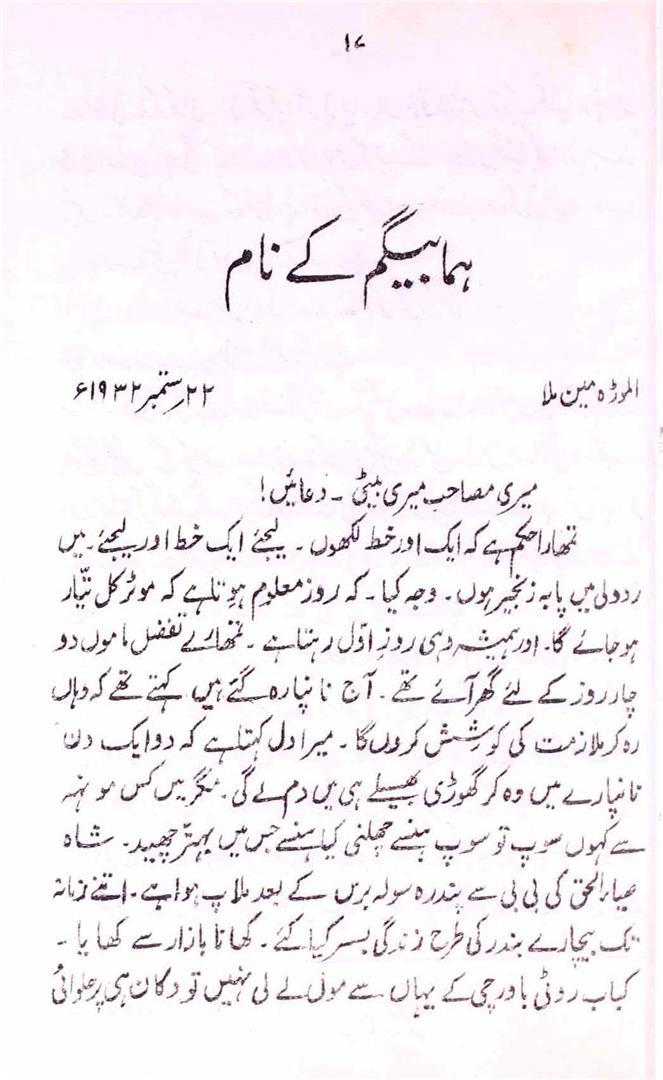 ۱۷
ہما بیگم کے نام
الموڑہ مین ملا ۲۲؍ستمبر ۱۹۳۲ء
میری مصاحب میری بیٹی ۔ دعائیں !
تمھارا حکم ہے کہ ایک اور خط لکھوں ۔ لیجئے ایک خط اور لیجئے ۔ میں
ردولی میں پابہ زنجیر ہوں ۔ وجہ کیا ۔ کہ روز معلوم ہوتا ہے کہ موٹر کل تیّار
ہو جائے گا ۔ اور ہمیشہ وہی روز اوّل رہتا ہے ۔ تمھارے تفضل ماموں دو
چار روز کے لئے گھر آئے تھے ۔ آج نانپارہ گئے ہیں کہتے تھے کہ وہاں
رہ کر ملازمت کی کوشش کروں گا ۔ میرا دل کہتا ہے کہ دو ایک دن
نانپارے میں وہ کر گھوڑی بھیسلے ہی میں دم لے گی ۔ مگر میں کس مونہہ
سے کہوں سوپ تو سوپ ہنسے چھلنی کیا ہنسے جس میں بہتّر چھید ۔ شاہ
حیار الحق کی بی بی سے پندرہ سولہ برس کے بعد ملاپ ہوا ہے ۔ اتنے زمانہ
تک بیچارے بندر کی طرح زندگی بسر کیا کئے ۔ کھانا بازار سے کھایا ۔
کباب روٹی باورچی کے یہاں سے مول لے لی نہیں تو دکان ہی پر حلوائی